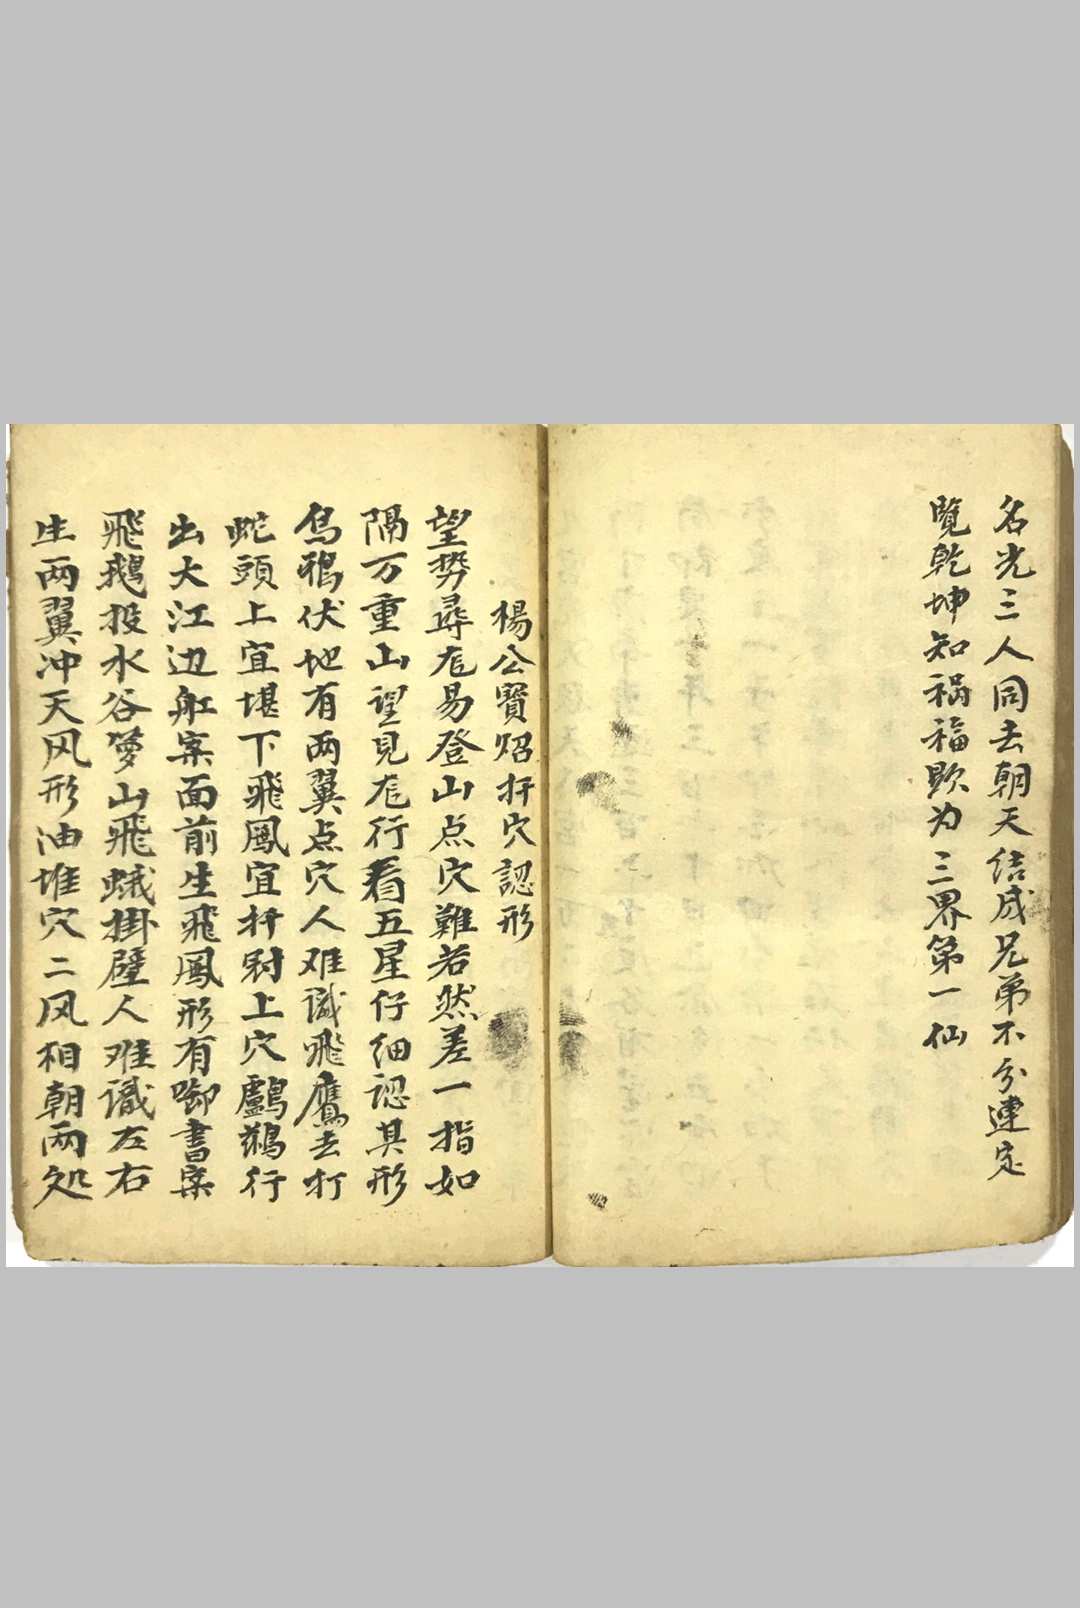 名光三人同去朝天结成兄弟不分連定
覽乾坤知禍福欺为三界第一仙
楊公寳炤扦穴認形
望势尋龙易登山点穴難若然差一指如
隔万重山望見龙行看五星仔细認其形
烏鴉伏地有两翼点穴人难识飛鷹去打
蛇頭上宜堪下飛鳳宜扦尉上穴鸕鶿行
出大江边舡案面前生飛鳳形有啣書案
飛鵝投水谷箩山飛蛾掛壁人难識左右
生两翼冲天风形油堆穴二风相朝两处